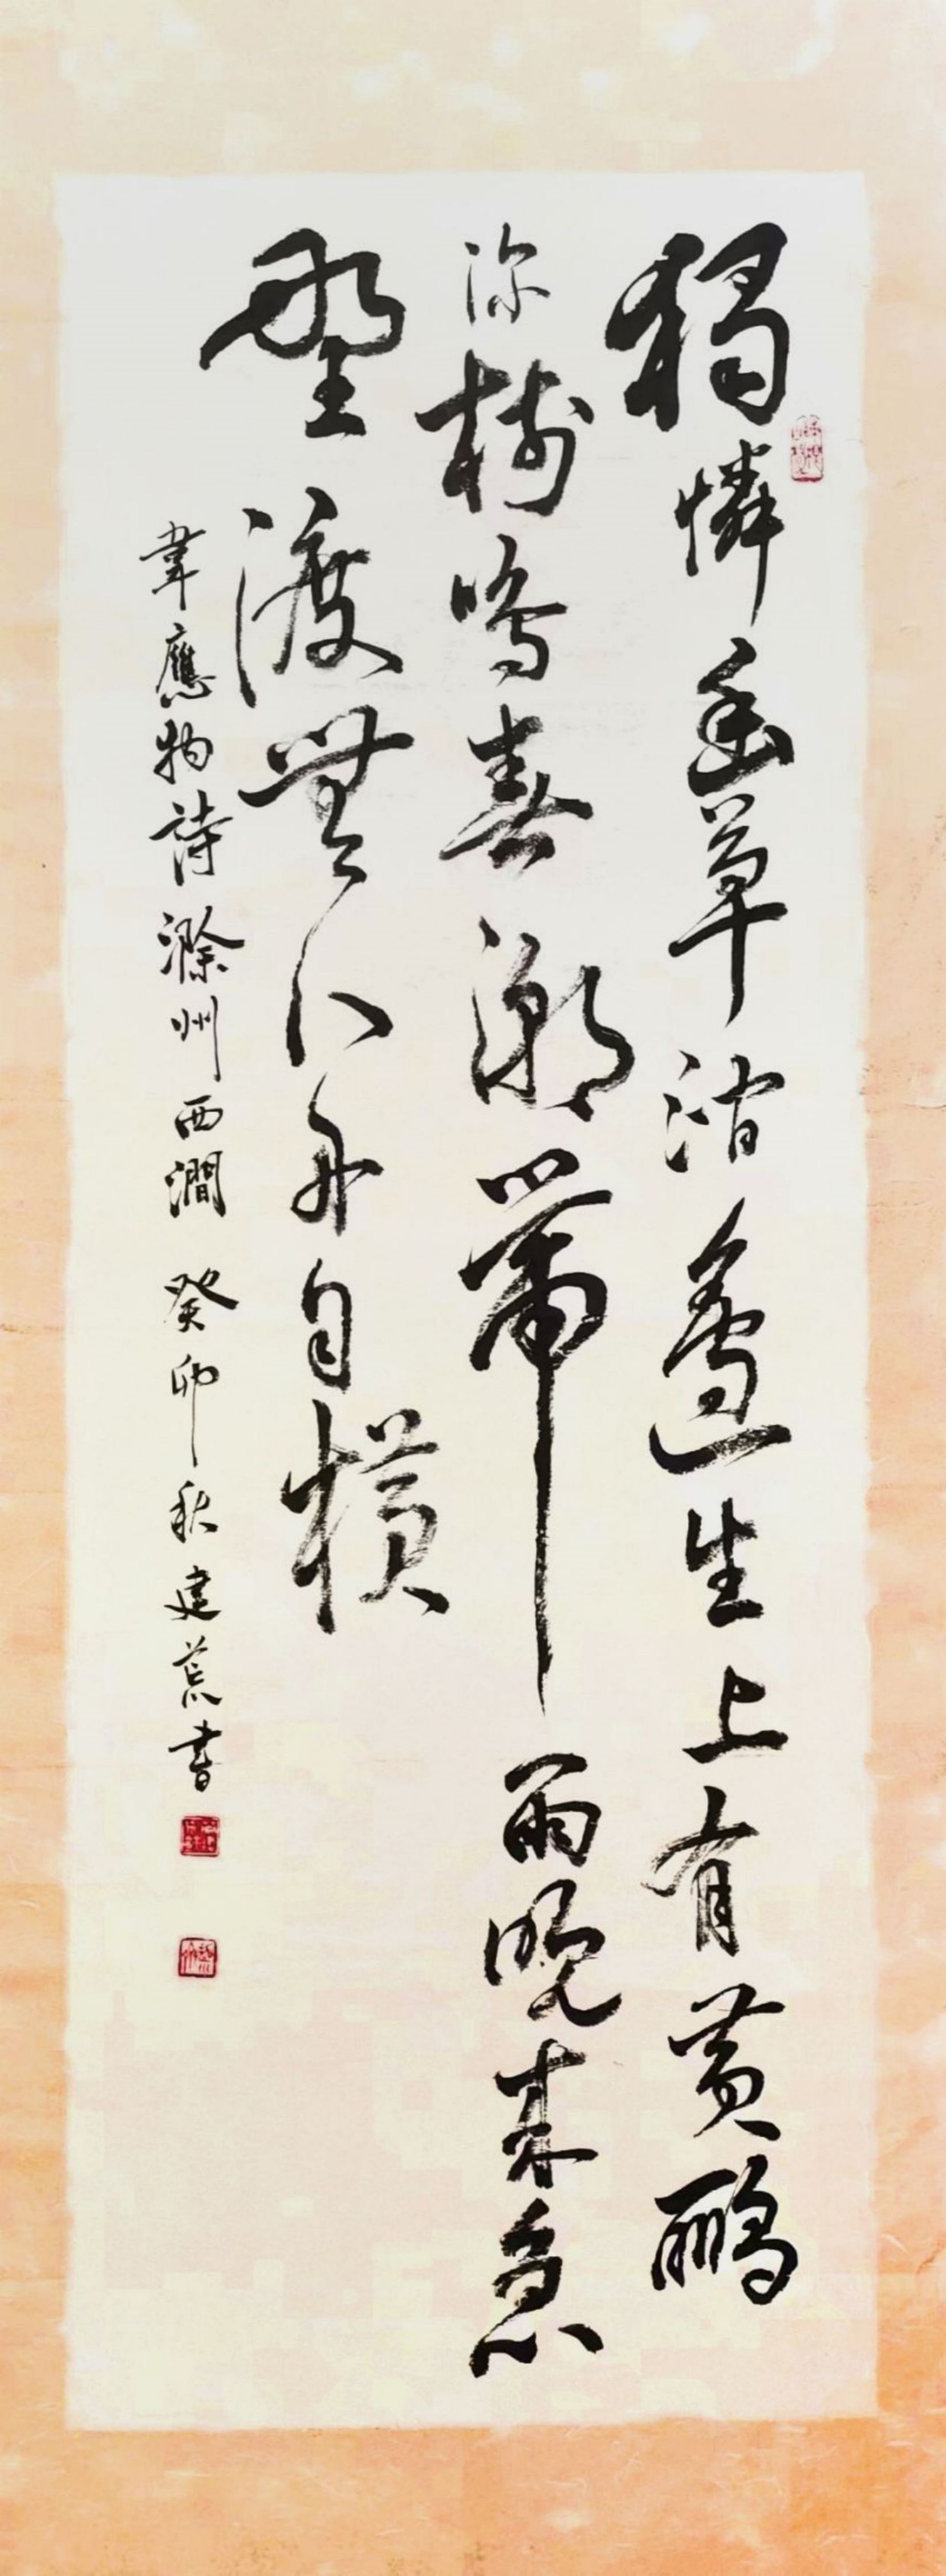 獨憐幽草澗邊生上有黃鸝
深樹鳴春潮帶雨晚來急
野渡無人舟自橫
韋應物詩滁州西澗 癸卯秋建書